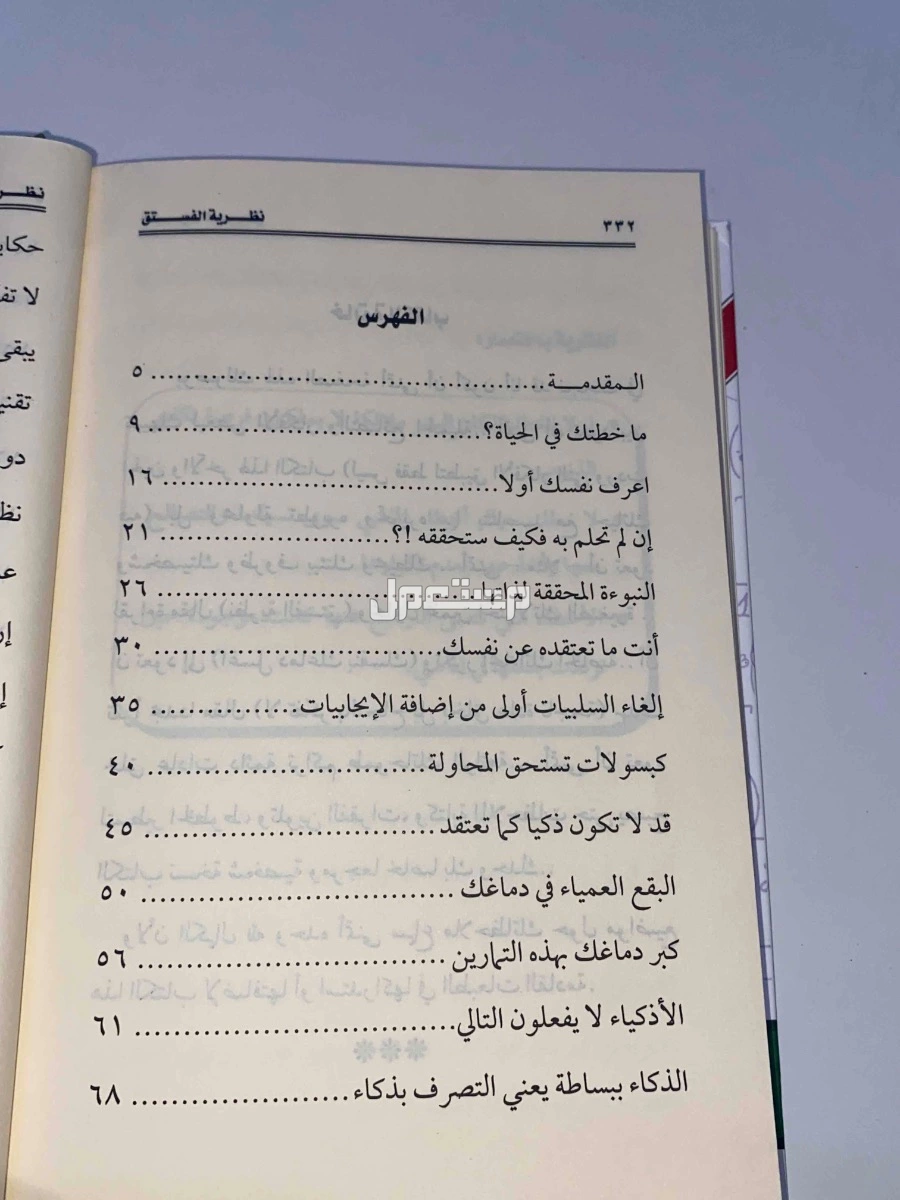 ٣٣٢ نظرية الفستق
الفهرس
المقدمة ..... ٥
ما خطتك في الحياة؟ ..... ٩
اعرف نفسك أولا ..... ١٦
إن لم تحلم به فكيف ستحققه !؟ ..... ٢١
النبوءة المحققة لذاتها ..... ٢٦
أنت ما تعتقده عن نفسك ..... ٣٠
إلغاء السلبيات أولى من إضافة الإيجابيات ..... ٣٥
كبسولات تستحق المحاولة ..... ٤٠
قد لا تكون ذكيا كما تعتقد ..... ٤٥
البقع العمياء في دماغك ..... ٥٠
كبر دماغك بهذه التمارين ..... ٥٦
الأذكياء لا يفعلون التالي ..... ٦١
الذكاء ببساطة يعني التصرف بذكاء ..... ٦٨